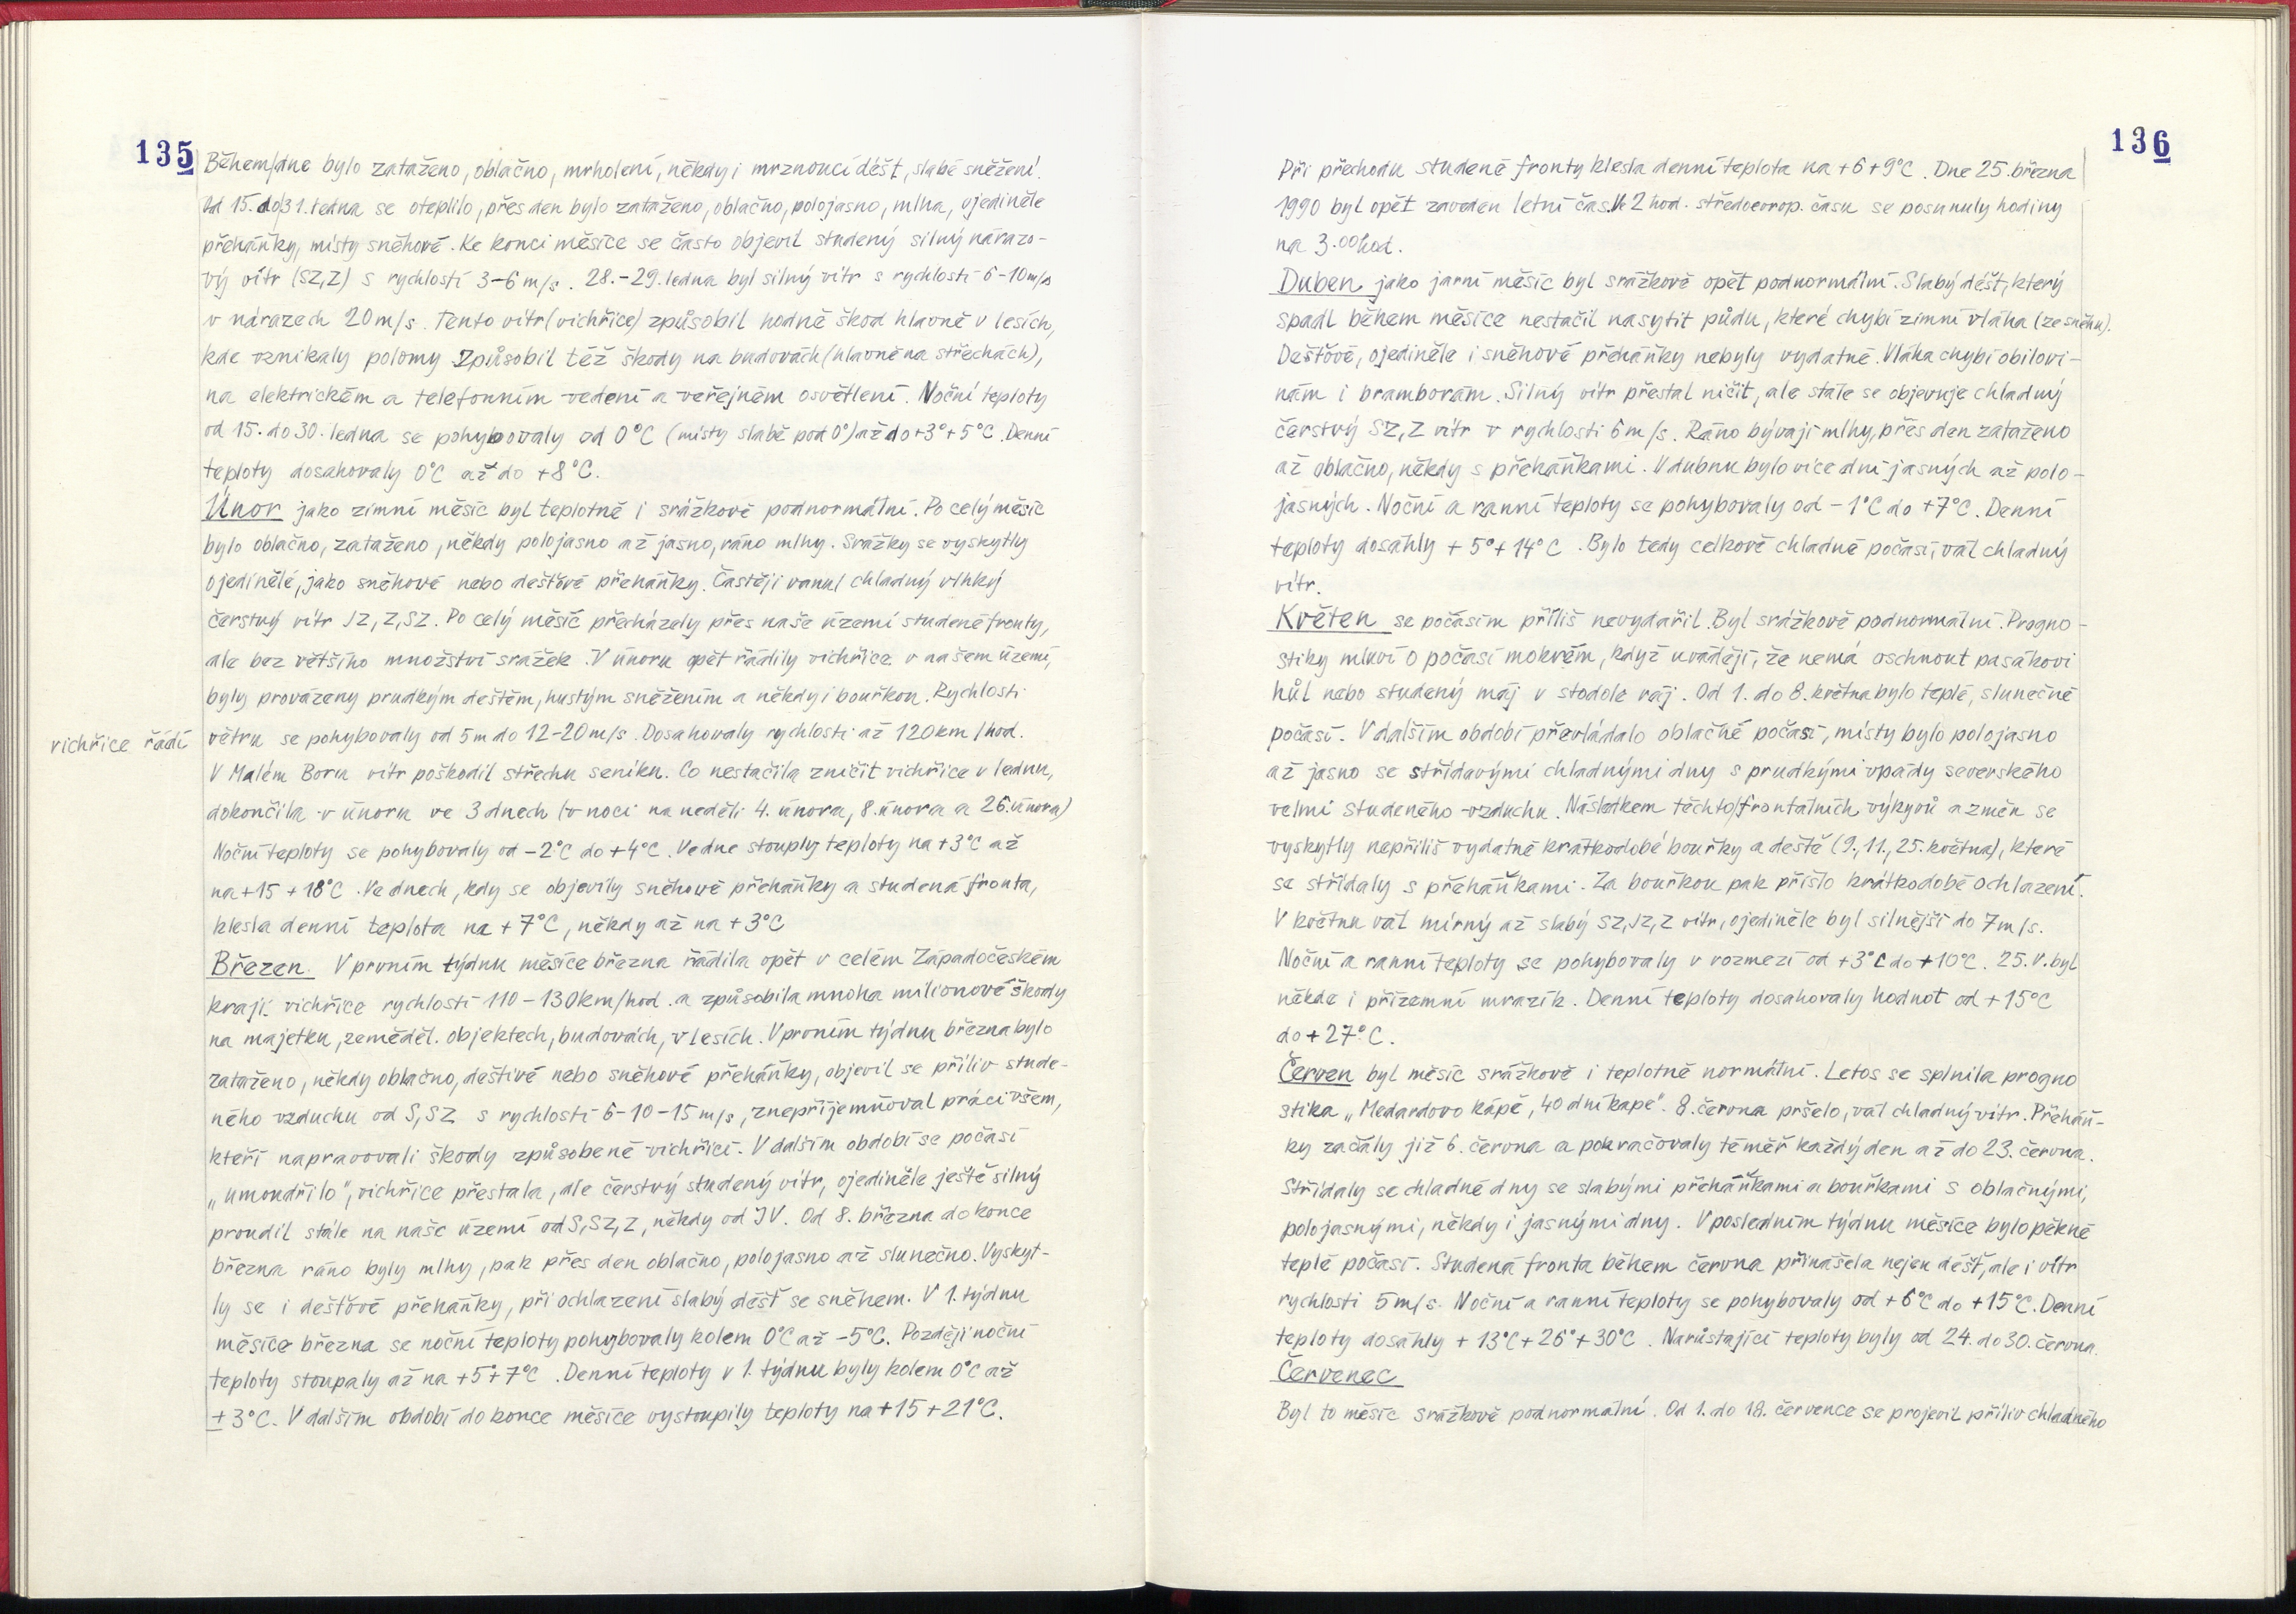 135
Během dne bylo zataženo, oblačno, mrholení, někdy i mrznoucí déšť, slabé sněžení.
Od 15. do 31. ledna se oteplilo, přes den bylo zataženo, oblačno, polojasno, mlha, ojediněle
přeháňky, místy sněhové. Ke konci měsíce se často objevil studený silný nárazo-
vý vítr (SZ, Z) s rychlostí 3-6 m/s. 28.-29. ledna byl silný vítr s rychlostí 6-10 m/s
v nárazech 20 m/s. Tento vítr (vichřice) způsobil hodně škod hlavně v lesích,
kde vznikaly polomy. Způsobil též škody na budovách (hlavně na střechách),
na elektrickém a telefonním vedení a veřejném osvětlení. Noční teploty
od 15. do 30. ledna se pohybovaly od 0°C (místy slabě pod 0°) až do +3°+5°C. Denní
teploty dosahovaly 0°C až do +8°C.
Únor jako zimní měsíc byl teplotně i srážkově podnormální. Po celý měsíc
bylo oblačno, zataženo, někdy polojasno až jasno, ráno mlhy. Srážky se vyskytly
ojedinělé, jako sněhové nebo dešťové přeháňky. Častěji vanul chladný vlhký
čerstvý vítr JZ, Z, SZ. Po celý měsíc přecházely přes naše území studené fronty,
ale bez většího množství srážek. V únoru opět řádily vichřice v našem území,
byly provázeny prudkým deštěm, hustým sněžením a někdy i bouřkou. Rychlosti
vichřice řádí
větru se pohybovaly od 5 m do 12-20 m/s. Dosahovaly rychlosti až 120 km/hod.
V Malém Boru vítr poškodil střechu seníku. Co nestačila zničit vichřice v lednu,
dokončila v únoru ve 3 dnech (v noci na neděli 4. února, 8. února a 26. února)
Noční teploty se pohybovaly od -2°C do +4°C. Ve dne stouply teploty na +3°C až
na +15 +18°C. Ve dnech, kdy se objevily sněhové přeháňky a studená fronta,
klesla denní teplota na +7°C, někdy až na +3°C
Březen. V prvním týdnu měsíce března řádila opět v celém Západočeském
kraji vichřice rychlostí 110-130 km/hod. a způsobila mnoha milionové škody
na majetku, zeměděl. objektech, budovách, v lesích. V prvním týdnu března bylo
zataženo, někdy oblačno, deštivé nebo sněhové přeháňky, objevil se příliv stude-
ného vzduchu od S, SZ s rychlostí 6-10-15 m/s, znepříjemňoval práci všem,
kteří napravovali škody způsobené vichřicí. V dalším období se počasí
„umoudřilo“, vichřice přestala, ale čerstvý studený vítr, ojediněle ještě silný
proudil stále na naše území od S, SZ, Z, někdy od JV. Od 8. března do konce
března ráno byly mlhy, pak přes den oblačno, polojasno až slunečno. Vyskyt-
ly se i dešťové přeháňky, při ochlazení slabý déšť se sněhem. V 1. týdnu
měsíce března se noční teploty pohybovaly kolem 0°C až -5°C. Později noční
teploty stoupaly až na +5+7°C. Denní teploty v 1. týdnu byly kolem 0°C až
±3°C. V dalším období do konce měsíce vystoupily teploty na +15 +21°C.
136
Při přechodu studené fronty klesla denní teplota na +6+9°C. Dne 25. března
1990 byl opět zaveden letní čas. Ve 2 hod. středoevrop. času se posunuly hodiny
na 3.00 hod.
Duben jako jarní měsíc byl srážkově opět podnormální. Slabý déšť, který
spadl během měsíce nestačil nasytit půdu, které chybí zimní vláha (ze sněhu).
Dešťové, ojediněle i sněhové přeháňky nebyly vydatné. Vláha chybí obilovi-
nám i bramborám. Silný vítr přestal ničit, ale stále se objevuje chladný
čerstvý SZ, Z vítr v rychlosti 6 m/s. Ráno bývají mlhy, přes den zataženo
až oblačno, někdy s přeháňkami. V dubnu bylo více dní jasných až polo-
jasných. Noční a ranní teploty se pohybovaly od -1°C do +7°C. Denní
teploty dosáhly +5°+14°C. Bylo tedy celkově chladné počasí, vál chladný
vítr.
Květen se počasím příliš nevydařil. Byl srážkově podnormální. Progno-
stiky mluví o počasí mokrém, když uvádějí, že nemá oschnout pasákovi
hůl nebo studený máj v stodole ráj. Od 1. do 8. května bylo teplé, slunečné
počasí. V dalším období převládalo oblačné počasí, místy bylo polojasno
až jasno se střídavými chladnými dny s prudkými vpády severského
velmi studeného vzduchu. Následkem těchto frontálních výkyvů a změn se
vyskytly nepříliš vydatné krátkodobé bouřky a deště (9., 11., 25. května), které
se střídaly s přeháňkami. Za bouřkou pak přišlo krátkodobé ochlazení.
V květnu vál mírný až slabý SZ, JZ, Z vítr, ojediněle byl silnější do 7 m/s.
Noční a ranní teploty se pohybovaly v rozmezí od +3°C do +10°C. 25. V. byl
někde i přízemní mrazík. Denní teploty dosahovaly hodnot od +15°C
do +27°C.
Červen byl měsíc srážkově i teplotně normální. Letos se splnila progno
stika „Medardovo kápě, 40 dní kape“. 8. června pršelo, vál chladný vítr. Přeháň-
ky začály již 6. června a pokračovaly téměř každý den až do 23. června.
Střídaly se chladné dny se slabými přeháňkami a bouřkami s oblačnými,
polojasnými, někdy i jasnými dny. V posledním týdnu měsíce bylo pěkné
teplé počasí. Studená fronta během června přinášela nejen déšť, ale i vítr
rychlosti 5 m/s. Noční a ranní teploty se pohybovaly od +6°C do +15°C. Denní
teploty dosáhly +13°C+26°+30°C. Narůstající teploty byly od 24. do 30. června.
Červenec
Byl to měsíc srážkově podnormální. Od 1. do 18. července se projevil příliv chladného